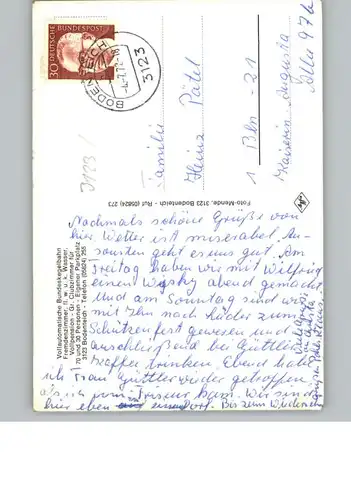 DEUTSCHE BUNDESPOST
30
BODENTEICH
3123
3123
Familie
Heinz Pätel
1 Bln - 21
Kaiserin Augusta
Allee 97 b
Foto-Mende, 3123 Bodenteich - Ruf: (05824) 273
Vollautomatische Bundeskegelbahn
Fremdenzimmer, fl. w. u. k. Wasser,
Vollpension - Gr. Clubzimmer für
70 und 30 Personen - Eigener Parkplatz
3123 Bodenteich - Telefon (05824) 255
Nochmals schöne Grüße von
hier Wetter ist miserabel. An-
sonsten geht es uns gut. Am
Freitag haben wir mit Wilfried
einen Wysky abend gemacht
Und am Sonntag sind wir
mit Ihm nach Lüder zum
Schützenfest gewesen und
anschließend bei Güttler
Kaffee trinken. Ebend habe
ich Frau Güttler wieder getroffen
als ich vom Friseur kam. Wir sind
hier eben Dorf. Bis zum Wiedersehn